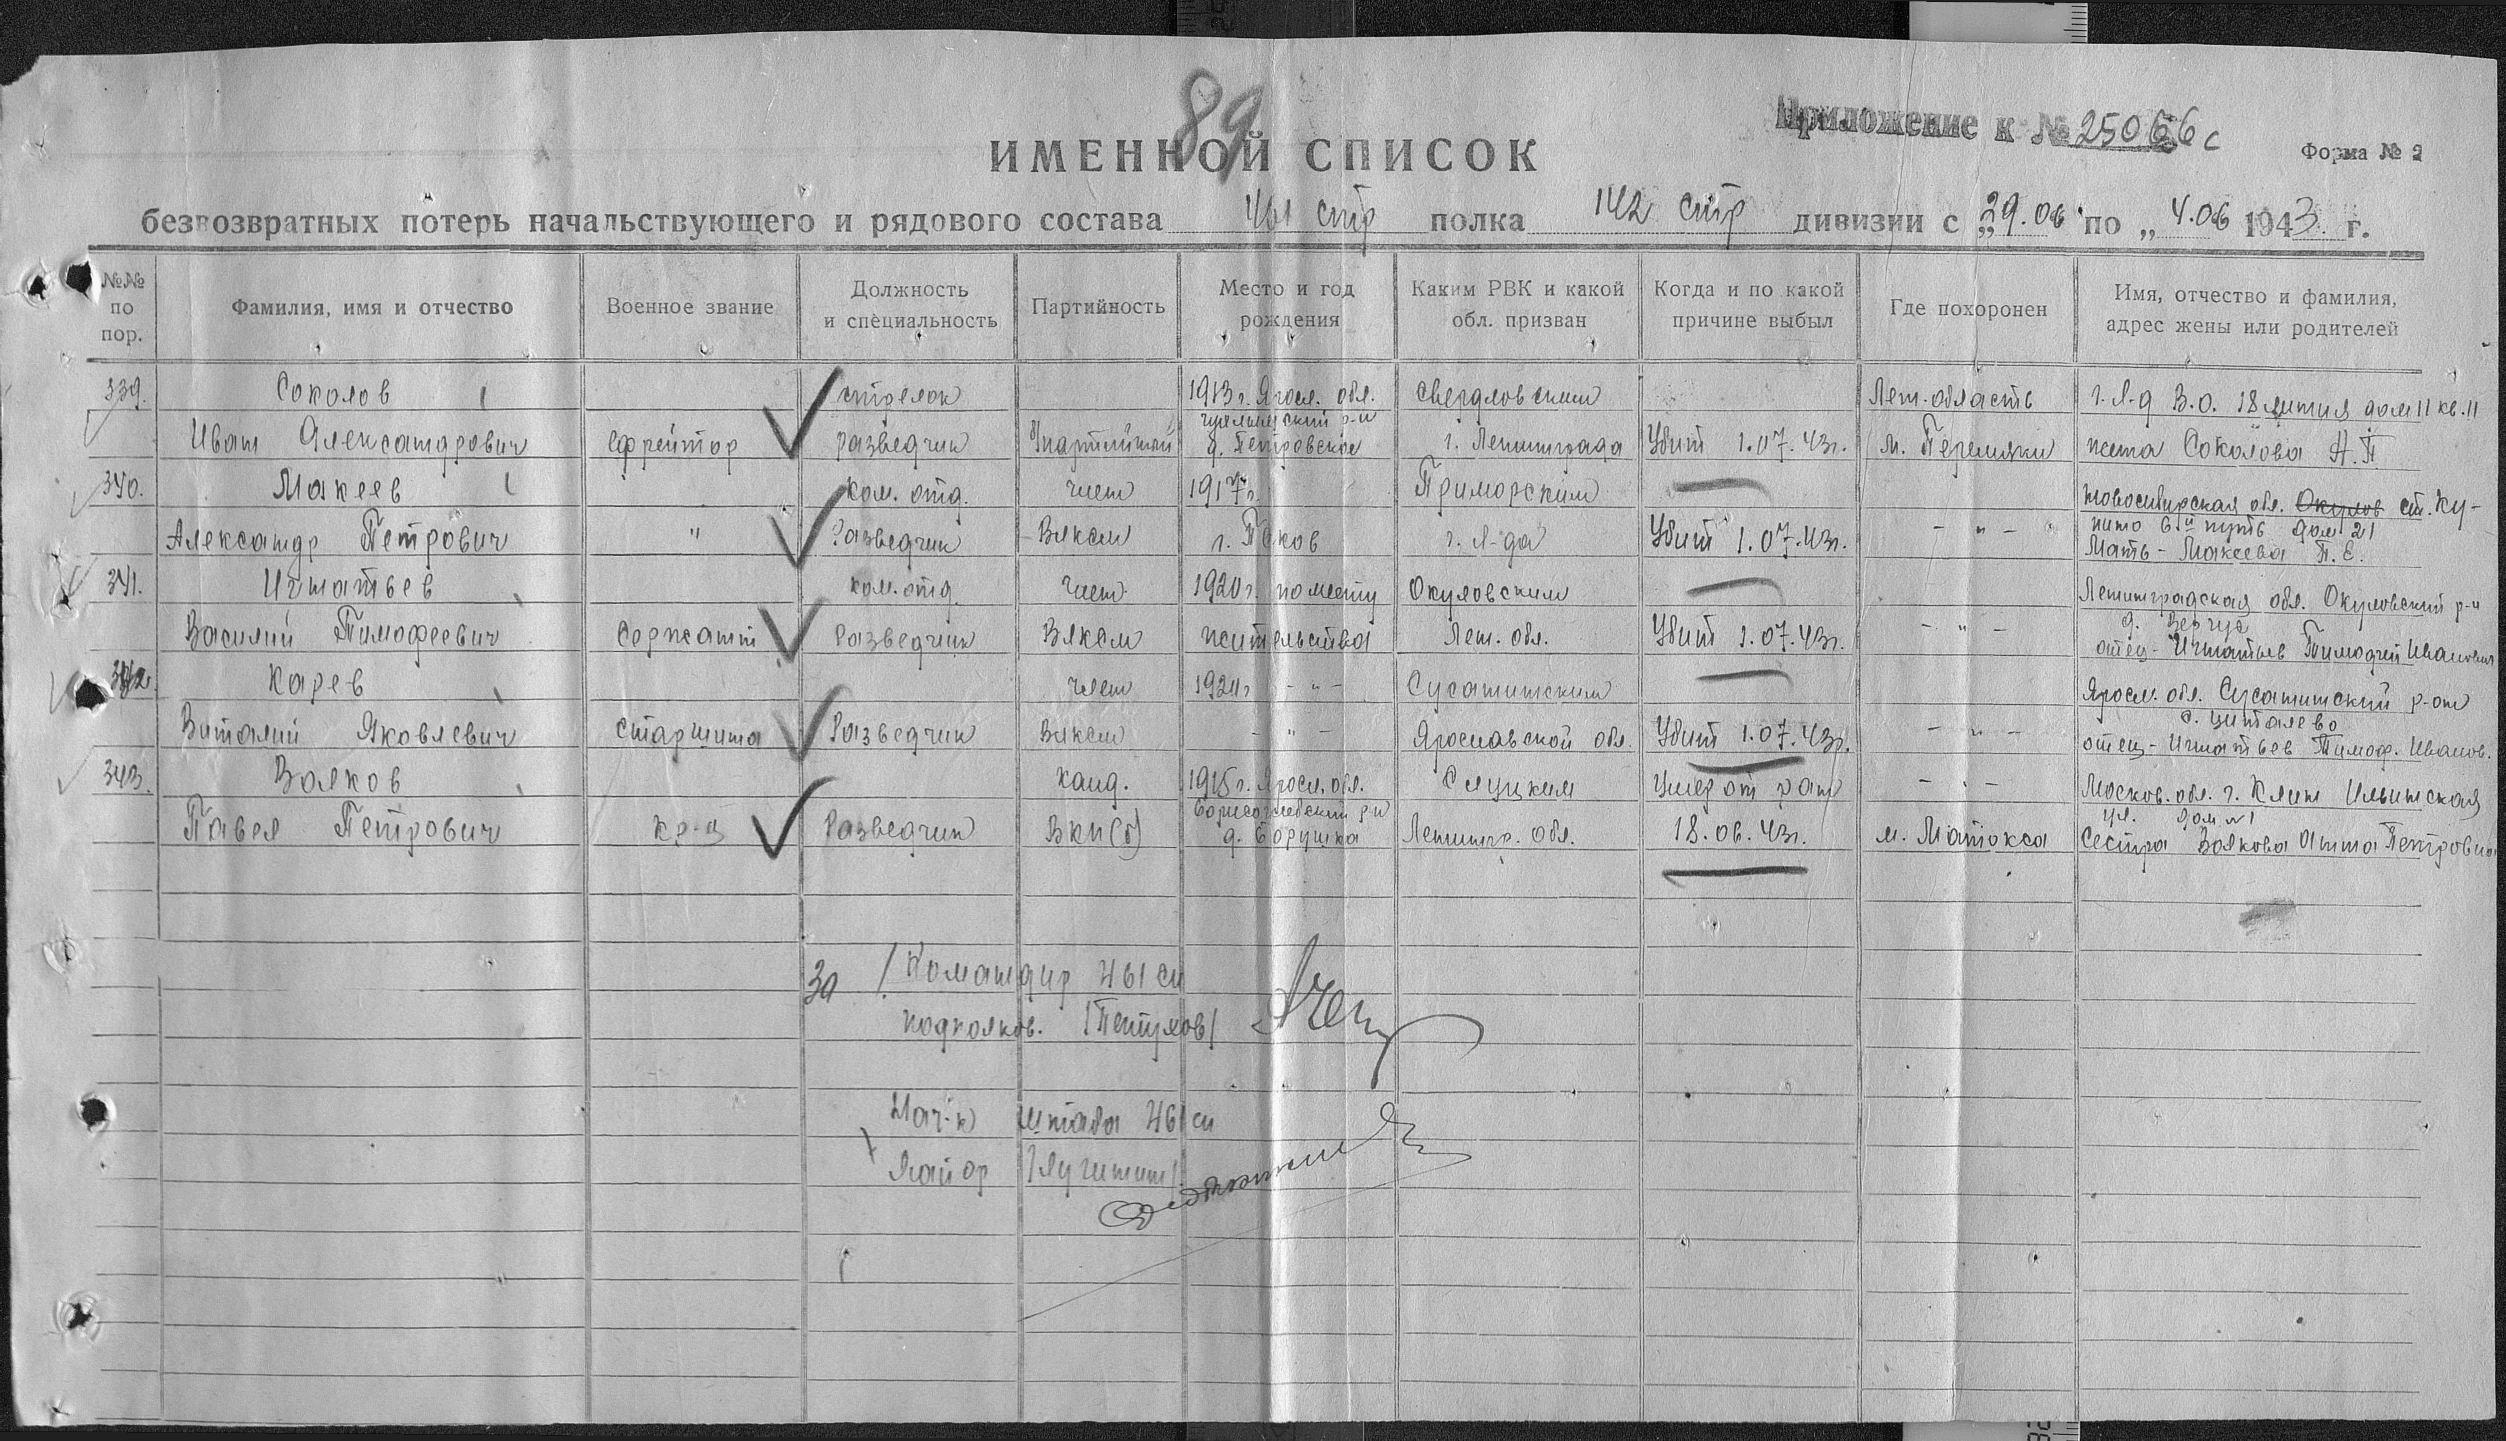 89
Приложение к № 25066с
ИМЕННОЙ СПИСОК
Форма № 2
безвозвратных потерь начальствующего и рядового состава 461 стр полка 142 стр дивизии с „29.06 по „ 4.06 1943 г.
№№ по пор.
Фамилия, имя и отчество
Военное звание
Должность и специальность
Партийность
Место и год рождения
Каким РВК и какой обл. призван
Когда и по какой причине выбыл
Где похоронен
Имя, отчество и фамилия, адрес жены или родителей
339. Соколов стрелок 1913 г. Яросл. обл. Свердловским Лен. область г. Л-д В.О. 18 линия дом 11 кв. 11
р-н
Иван Александрович ефрейтор разведчик д. Петровское г. Ленинграда Убит 1.07.43г. м. Перемяки жена Соколова А.П.
340. Макеев ком. отд. член 1917г. Приморским Новосибирская обл. Окулов ст. Ку-
пино 6й путь дом 21
Александр Петрович " Разведчик Влксм г. Псков г. Л-да Убит 1.07.43г. - " - Мать - Макеева П.Е.
341. Игнатьев ком. отд. член 1920г. по месту Окуловским Ленинградская обл. Окуловский р-н
д.
Василий Тимофеевич Сержант Разведчик Влксм жительства Лен. обл. Убит 1.07.43г. - " - отец - Игнатьев Тимофей Иванович
342. Карев член 1920г - " - Сусанинским Яросл. обл. Сусанинский р-он
Виталий Яковлевич Старшина Разведчик Влксм - " - Ярославской обл. Убит 1.07.43г. - " - отец - Игнатьев Тимоф. Иванов.
343. Волков канд. 1915г. Яросл. обл. Слуцким Умер от ран - " - Москов. обл. г. Клин Ильинская
Борисоглебский р-н ул. дом №1
Павел Петрович кр-ц Разведчик ВКП(б) д. Борушка Ленингр. обл. 18.06.43г. м. Матокса Сестра Волкова Анна Петровна
За / Командир 461 сп
подполков. /Петухов/
Нач-к штаба 461 сп
Майор